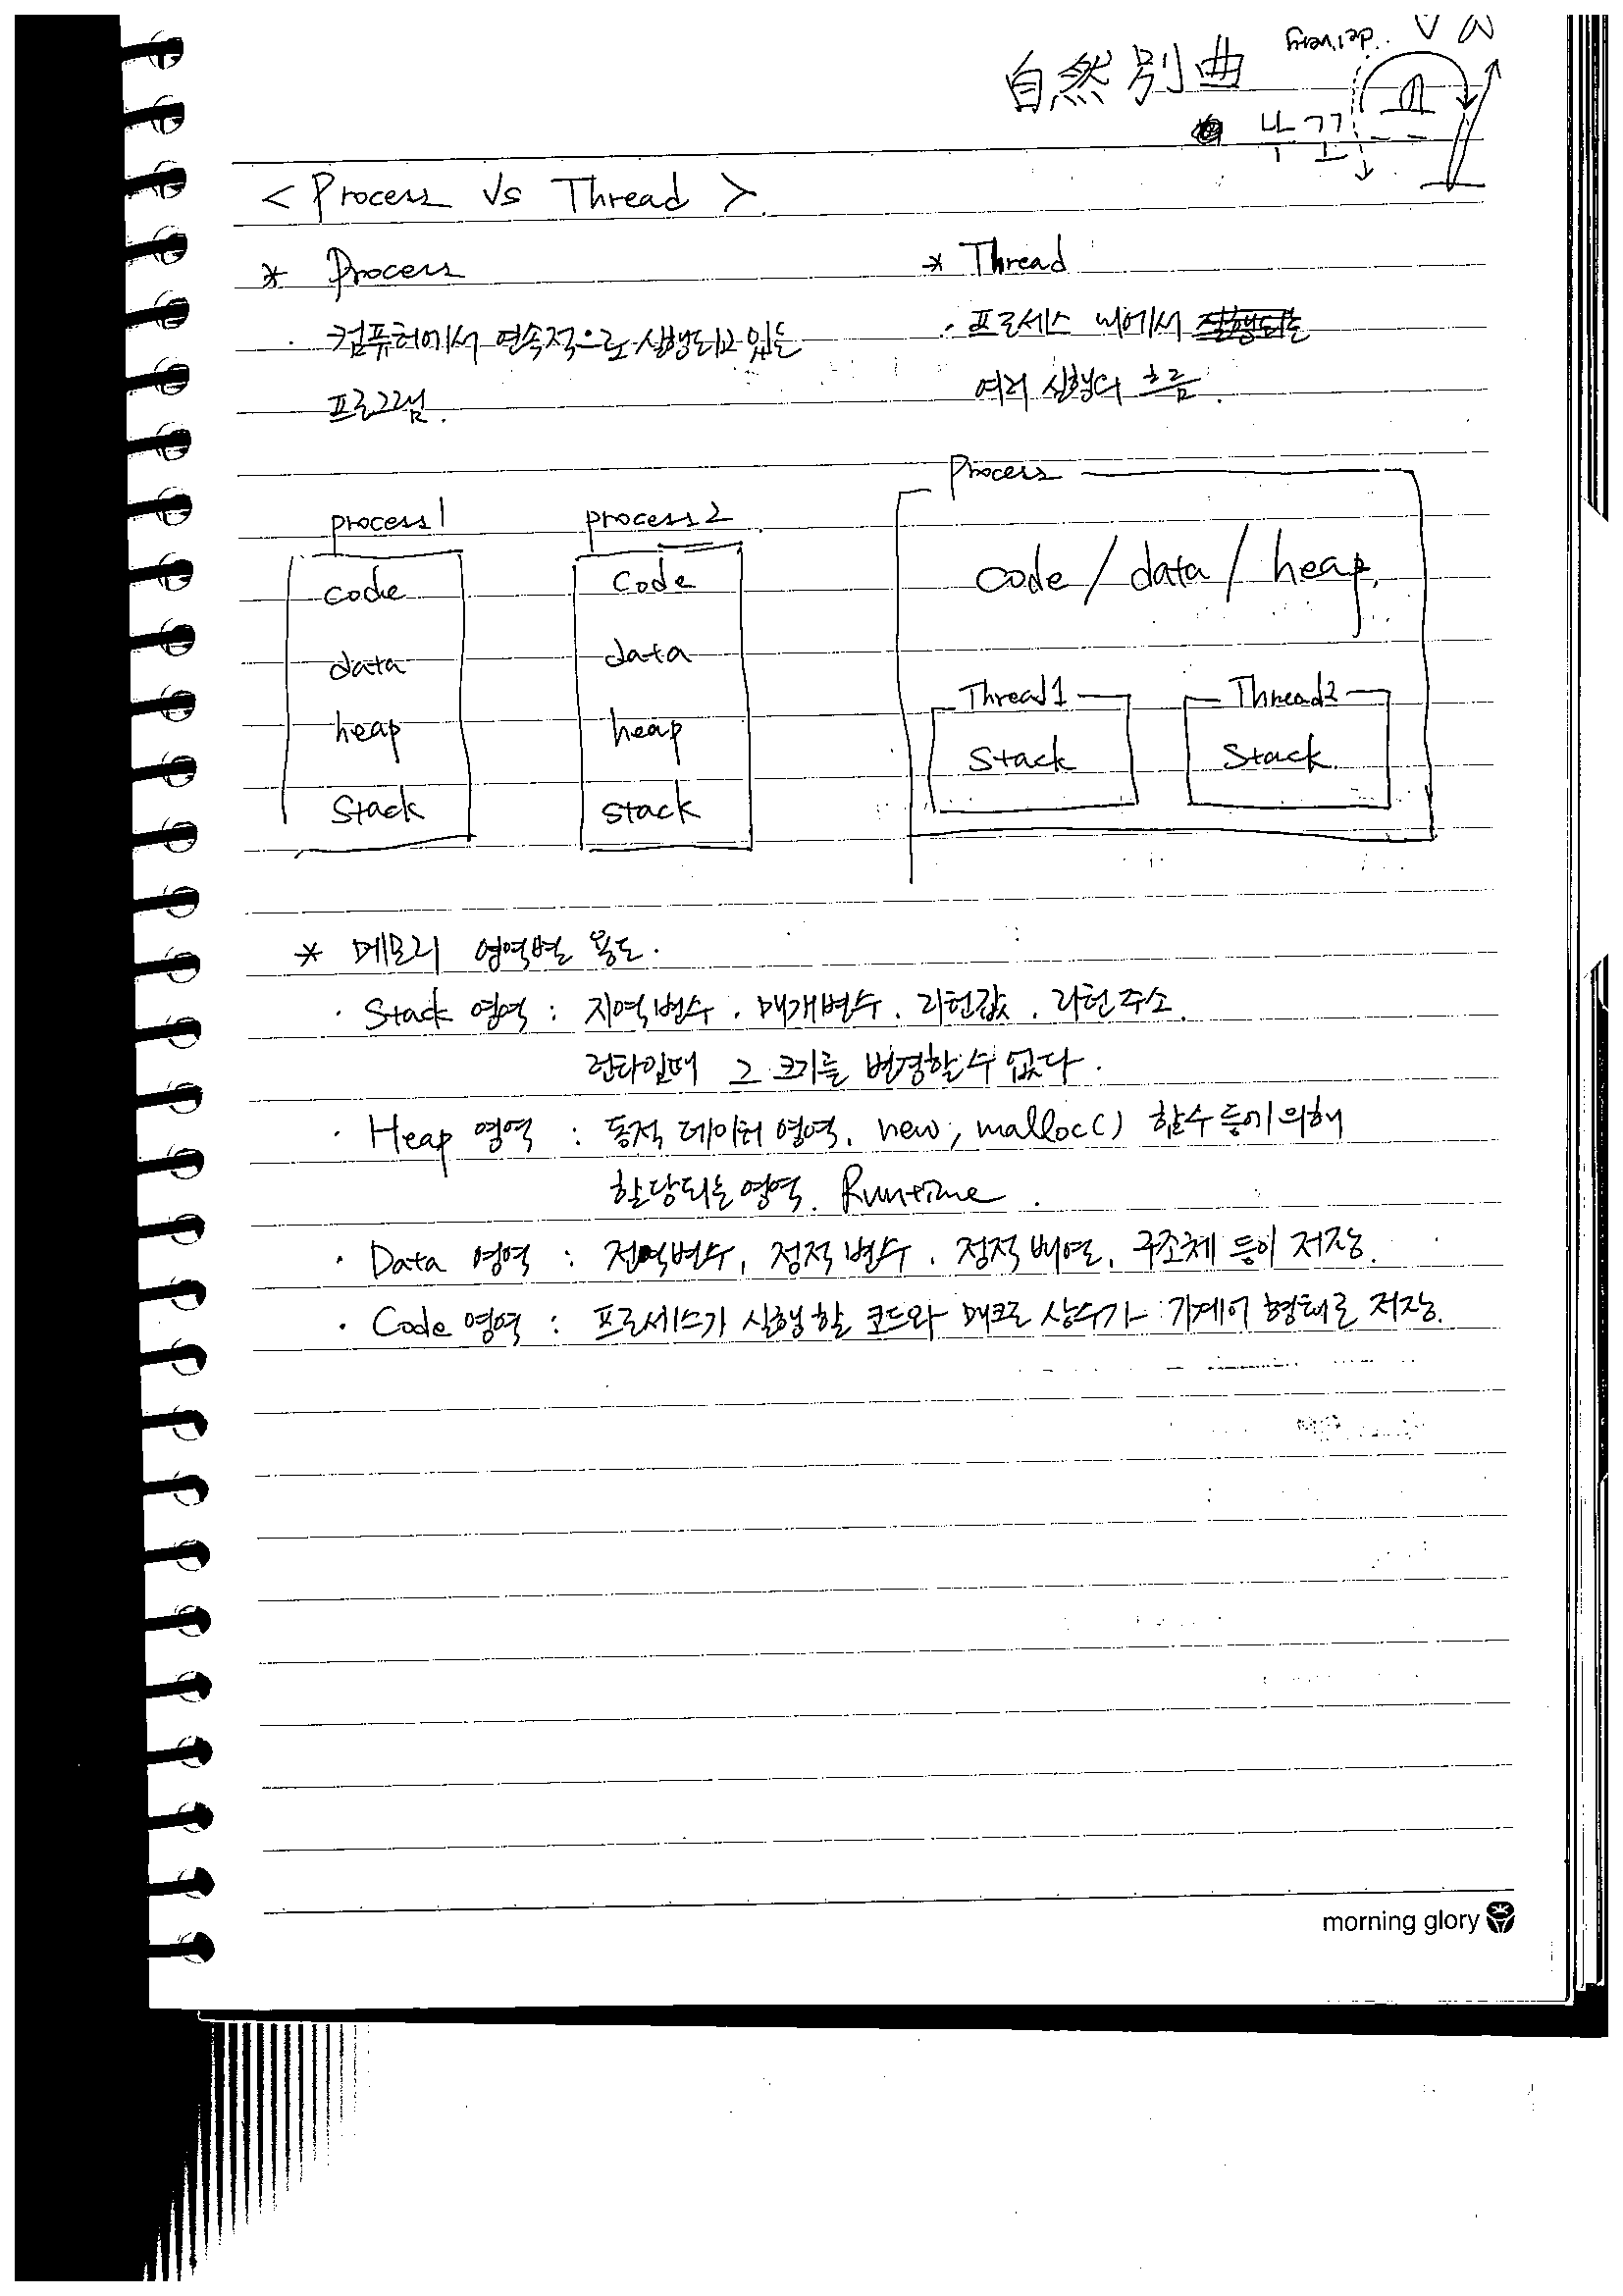 自然別曲
delivery
부끄
< Process vs Thread >
* Process
· 컴퓨터에서 연속적으로 실행되고 있는
프로그램.
* Thread
· 프로세스 내에서
여러 실행의 흐름.
process1
code
data
heap
Stack
process2
Code
data
heap
stack
Process
code / data / heap.
Thread1
Stack
Thread2
Stack
* 메모리 영역별 용도.
· Stack 영역 : 지역변수, 매개변수, 리턴값, 리턴주소.
런타임때 그 크기를 변경할 수 없다.
· Heap 영역 : 동적 데이터 영역. new, malloc() 함수 등에 의해
할당되는 영역. Runtime.
· Data 영역 : 전역변수, 정적변수, 정적배열, 구조체 등이 저장.
· Code 영역 : 프로세스가 실행할 코드와 매크로 상수가 기계어 형태로 저장.
morning glory